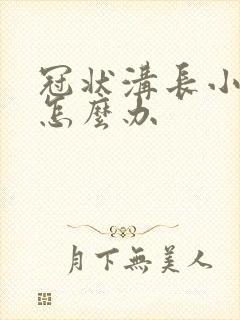 冠状溝長小
怎麼办
月下無美人